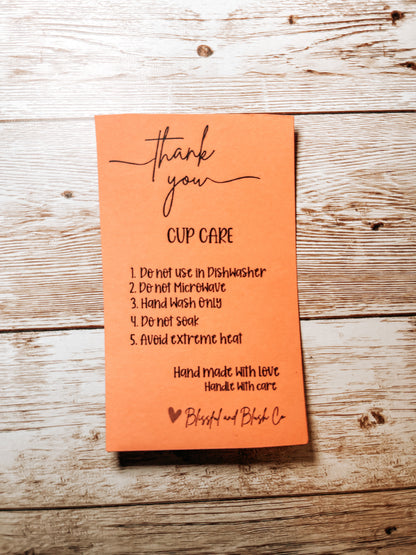 thank
you
CUP CARE
1. Do not use in Dishwasher
2. Do not Microwave
3. Hand Wash Only
4. Do not Soak
5. Avoid extreme heat
Hand made with love
Handle with care
Blissful and Blush Co